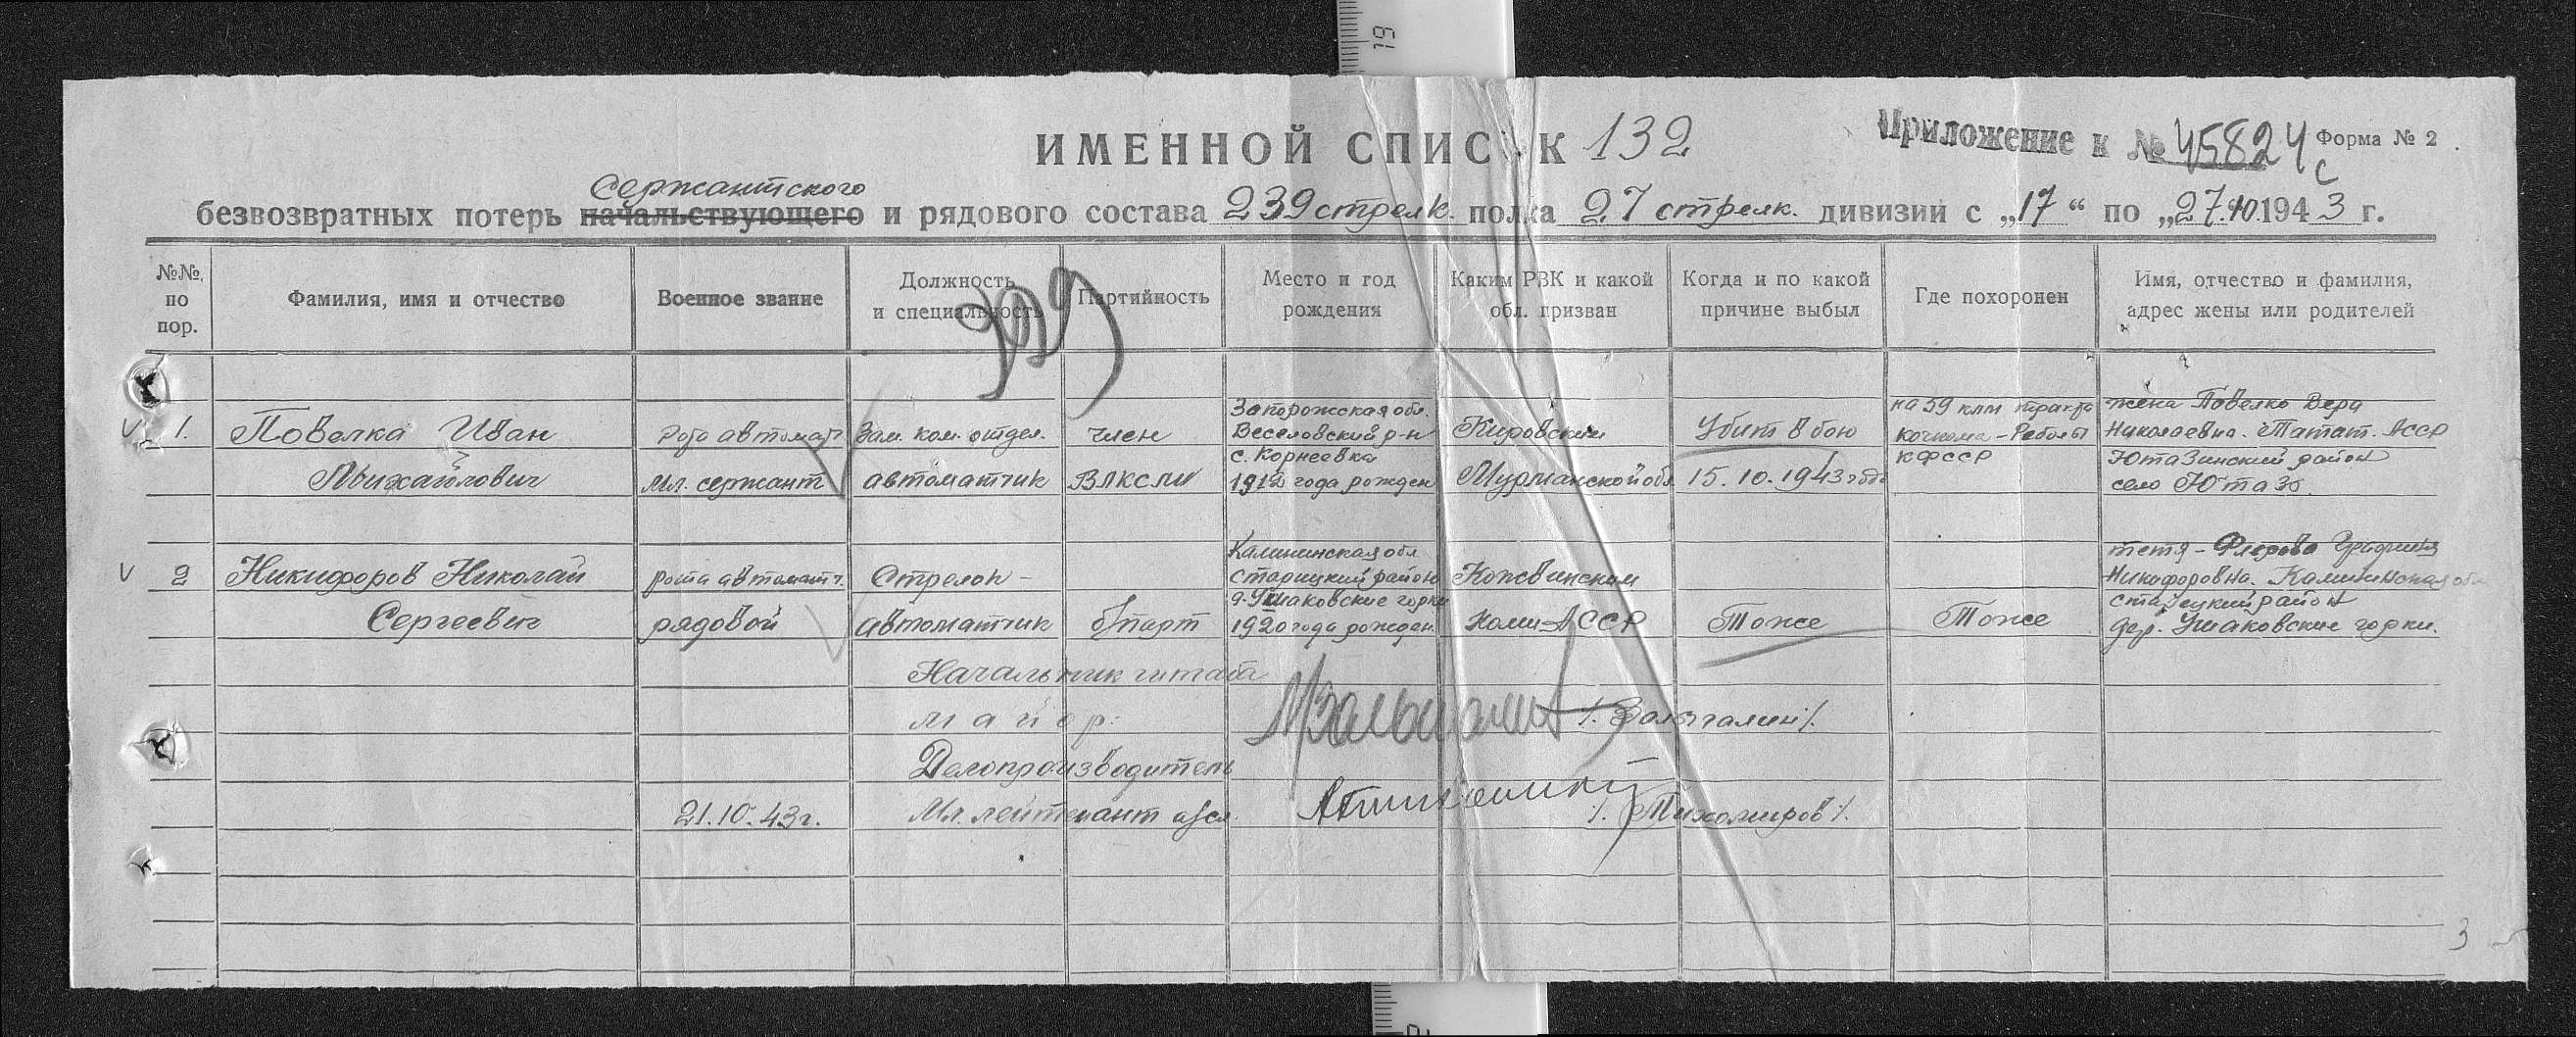 19
ИМЕННОЙ СПИСОК 132
Приложение к № 45824с
Форма № 2
Сержантского
безвозвратных потерь начальствующего и рядового состава 239 стрелк. полка 27 стрелк. дивизии с „17“ по „27.10.1943 г.
№№ по пор.
Фамилия, имя и отчество
Военное звание
Должность и специальность
Партийность
Место и год рождения
Каким РВК и какой обл. призван
Когда и по какой причине выбыл
Где похоронен
Имя, отчество и фамилия, адрес жены или родителей
1.
Повелка Иван
Михайлович
Рота автомат
мл. сержант
Зам. ком. отдел.
автоматчик
член
ВЛКСМ
Запорожская обл.
Веселовский р-н
с. Корнеевка
1912 года рожден
Кировским
Мурманской обл.
Убит в бою
15.10.1943 года
на 59 клм тракта
Кочкома - Реболы
КФССР
жена Повелко Вера
Николаевна. Татат. АССР
Ютазинский район
село Ютаза.
2
Никифоров Николай
Сергеевич
рота автоматч.
рядовой
Стрелок -
автоматчик
б/парт
Калининская обл
Старицкий район
д. Ушаковские горки
1920 года рожден.
Кожвинским
Коми АССР
Тоже
Тоже
тетя -
Никифоровна. Калининская обл
Старицкий район
дер. Ушаковские горки.
Начальник штаба
майор:
Делопроизводитель
21.10.43г.
Мл. лейтенант а/сл.
/. Тихомиров /.
3